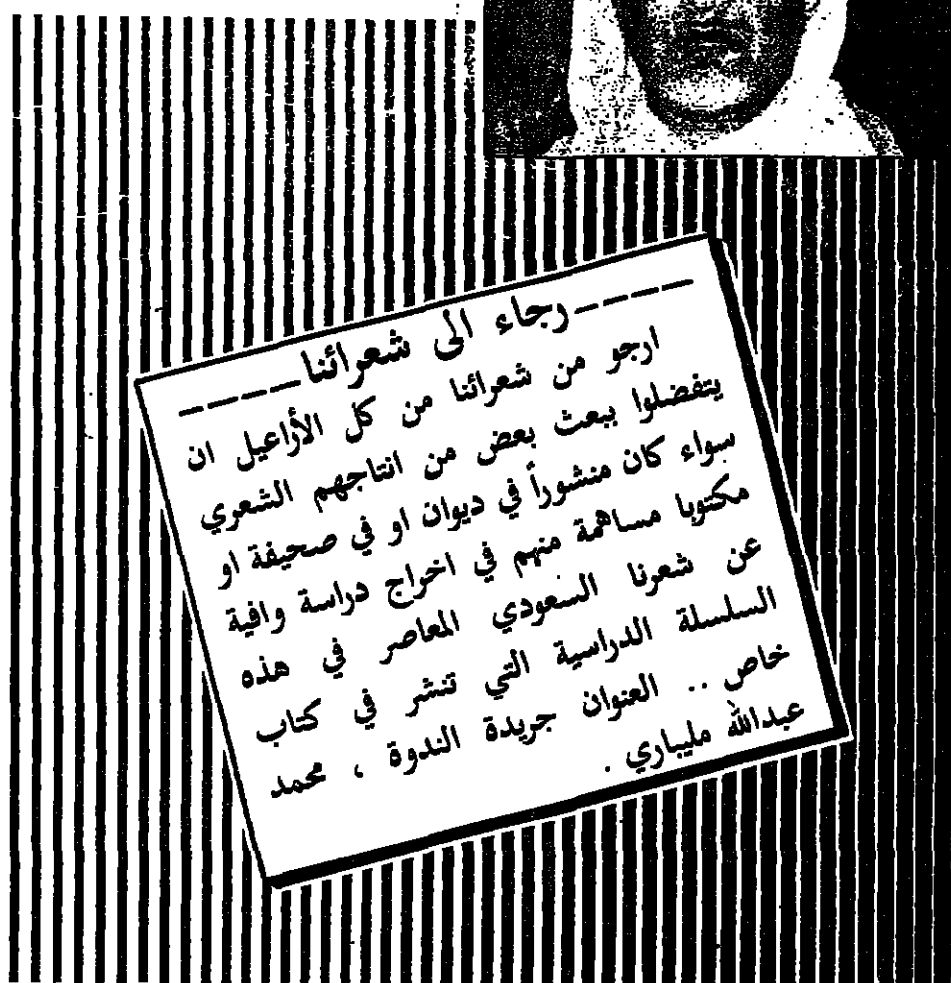 رجاء الى شعرائنا
ارجو من شعرائنا من كل الأراعيل ان
يتفضلوا ببعث بعض من انتاجهم الشعري
سواء كان منشوراً في ديوان او في صحيفة او
مكتوبا مساهمة منهم في اخراج دراسة وافية
عن شعرنا السعودي المعاصر في هذه
السلسلة الدراسية التي تنشر في كتاب
خاص .. العنوان جريدة الندوة ، محمد
عبدالله مليباري .